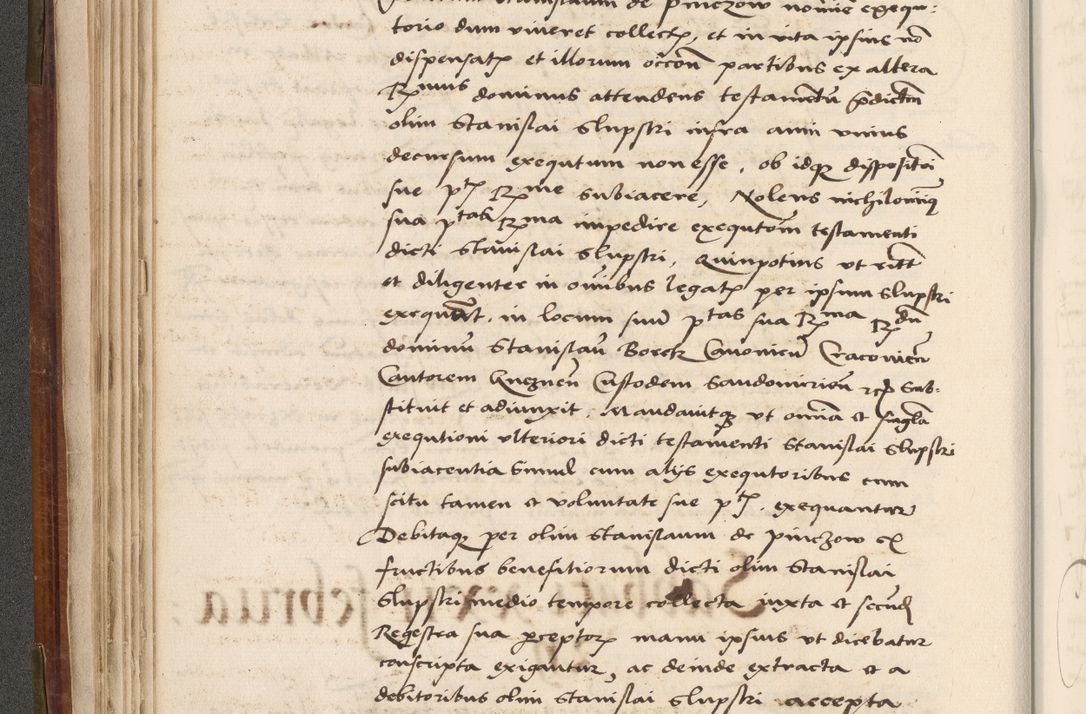 de pinczow nomine exequ:
torio dum viveret collectꝝ, et in vita ipsius nō
dispensatꝝ et illorum occon̄ partibus ex altera
Rꝫmus dominus attendens testamētū p̄dictm̄
olim Stanislai Slupski infra anni unius
decursum exequtum non esse, ob idqꝫ dispositōi
sue ptꝭ Rꝫme subiacere, Nolens nichilomīꝯ
sua ptas Rꝫma impedire exequtōm testamenti
dicti Stanislai Slupski, quinpotius ut ritē
et diligenter in oīnibus legatꝝ per ipsum Slupski
exequāt, in locum suū ptas sua Rꝫma Rꝫdū
dominū Stanislaū Borek Canonicū Cracovien̄
Cantorem Gneznen̄ Custodem Sandomirien̄ rcꝭ Sub:
stituit et adiunxit. Mandavitqꝫ ut omīa et singla
exequtioni ulteriori dicti testamenti Stanislai Slupski
subiacentia Simul cum alijs exequtoribus cum
scitu tamen et voluntate sue ptꝭ. exequantur
Debitaqꝫ per olim Stanislaum de pinczow ex
fructibus benefitiorum dicti olim Stanislai
Slupski medio tempore collecta iuxta et secūd
Regestra sua perceptorꝝ manu ipsius ut dicebatur
conscripta exigantur, ac deinde extracta et a
debitoribus olim Stanislai Slupski accepta